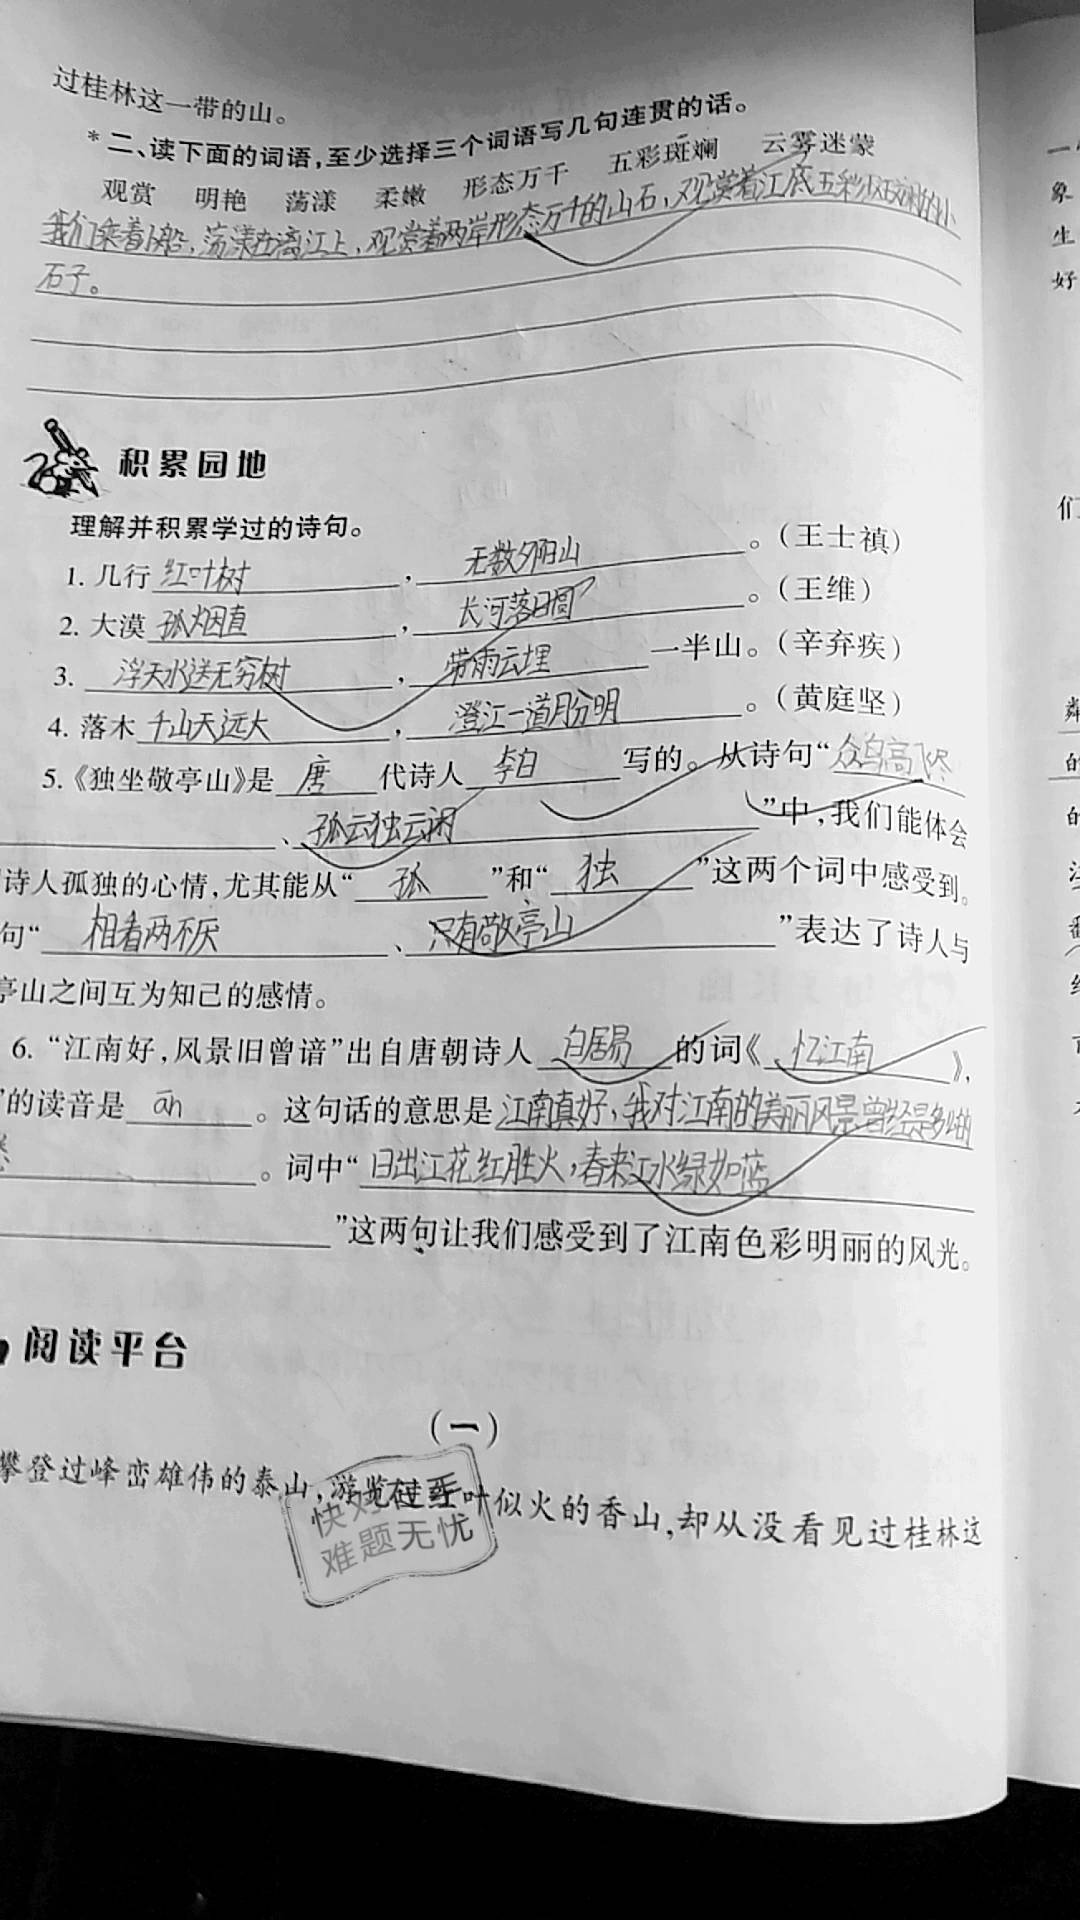 过桂林这一带的山。
*二、读下面的词语,至少选择三个词语写几句连贯的话。
观赏 明艳 荡漾 柔嫩 形态万千 五彩斑斓 云雾迷蒙
我们乘着小船,荡漾在漓江上,观赏着两岸形态万千的山石,观赏着江底五彩斑斓的小
石子。
积累园地
理解并积累学过的诗句。
1. 几行红叶树,无数夕阳山。(王士禛)
2. 大漠孤烟直,长河落日圆。(王维)
3. 浮天水送无穷树,带雨云埋一半山。(辛弃疾)
4. 落木千山天远大,澄江一道月分明。(黄庭坚)
5.《独坐敬亭山》是唐代诗人李白写的。从诗句“众鸟高飞尽
、孤云独云闲”中,我们能体会
诗人孤独的心情,尤其能从“孤”和“独”这两个词中感受到。
句“相看两不厌、只有敬亭山”表达了诗人与
亭山之间互为知己的感情。
6. “江南好,风景旧曾谙”出自唐朝诗人白居易的词《忆江南》,
”的读音是ān。这句话的意思是江南真好,我对江南的美丽风景曾经是多么的
。词中“日出江花红胜火,春来江水绿如蓝
”这两句让我们感受到了江南色彩明丽的风光。
阅读平台
(一)
攀登过峰峦雄伟的泰山,游览过红叶似火的香山,却从没看见过桂林这
快对在手
难题无忧
一
象
生
好
们
的
的